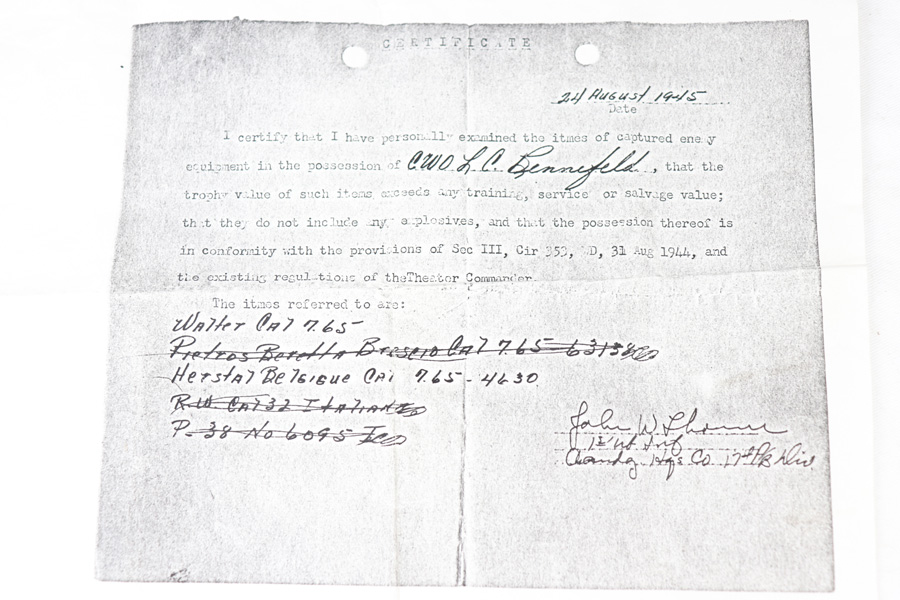 CERTIFICATE
24 August 1945
Date
I certify that I have personally examined the itmes of captured enemy
equipment in the possession of CWO L.C. Bennefeld, that the
trophy value of such items exceeds any training, service or salvage value;
that they do not include any explosives, and that the possession thereof is
in conformity with the provisions of Sec III, Cir 353, WD, 31 Aug 1944, and
the existing regulations of theTheater Commander.
The itmes referred to are:
Walter Cal 7.65
Pietros Beretta Brescia Cal 7.65
Herstal Belgique Cal 7.65 - 4630
R.W. Cal 32 Italian
P-38 No 6095
John W
1st Lt Inf
Comdg Hqs Co 17th